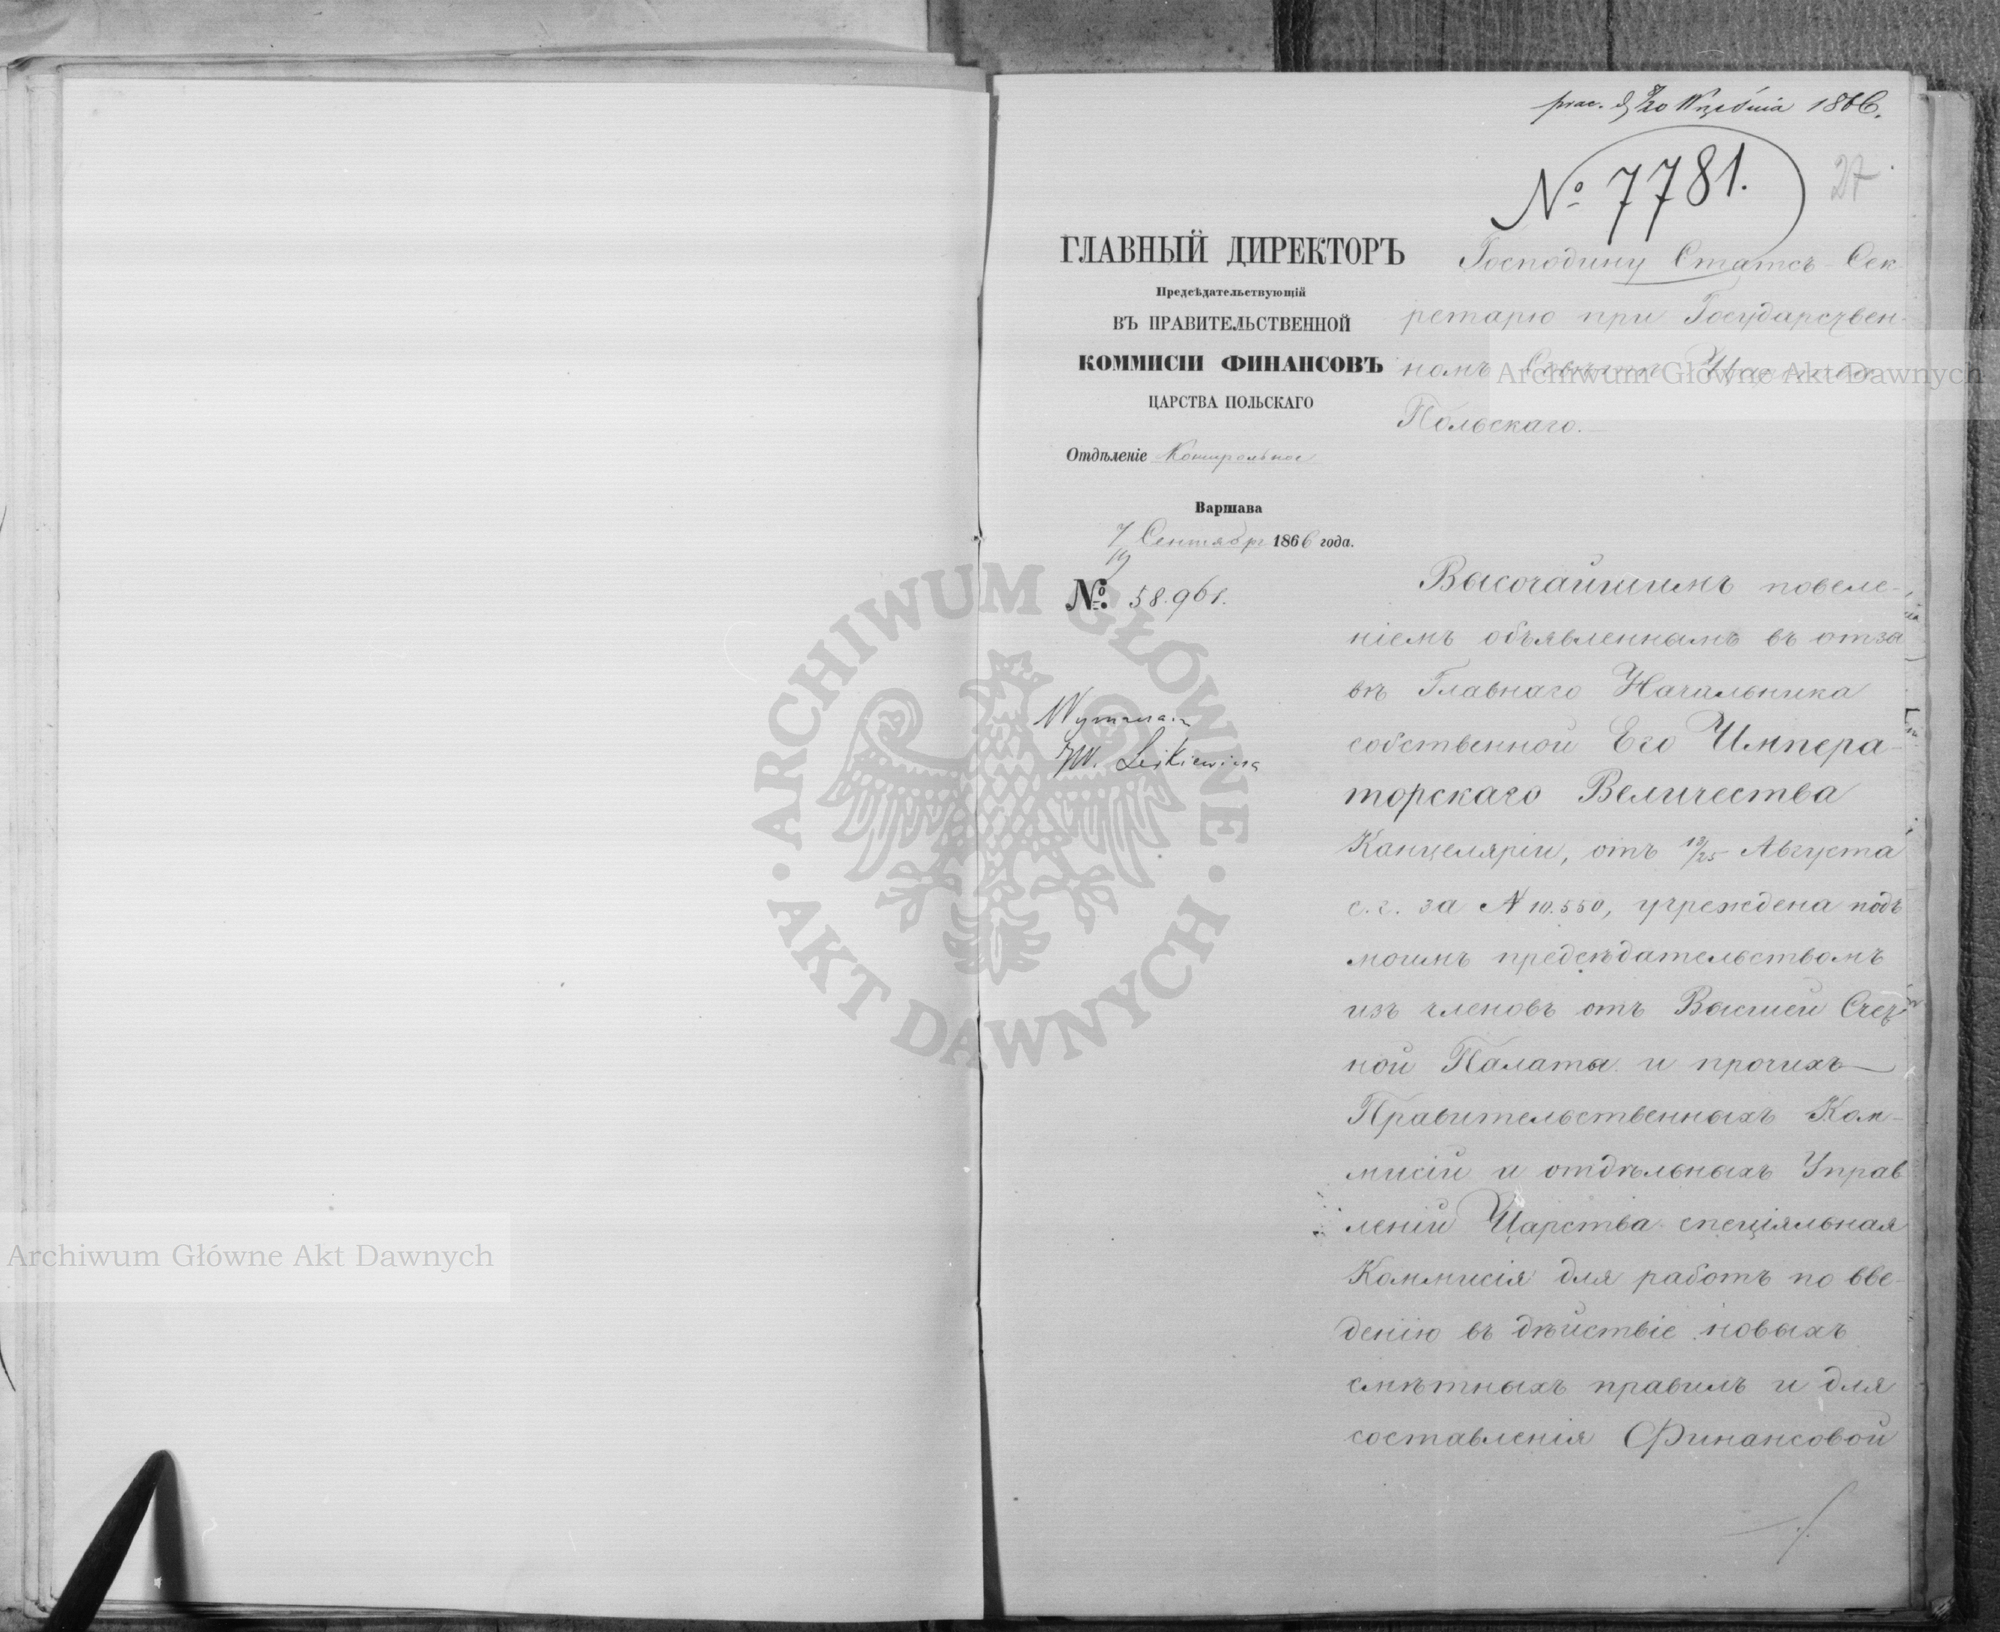 8/20 Września 1866.
№ 7781.
27.
ГЛАВНЫЙ ДИРЕКТОРЪ
Предсѣдательствующій
ВЪ ПРАВИТЕЛЬСТВЕННОЙ
КОММИСІИ ФИНАНСОВЪ
ЦАРСТВА ПОЛЬСКАГО
Отдѣленіе Контрольное
Варшава
7/19 Сентября 1866 года.
№ 58.961.
Господину Статсъ-Сек-
ретарю при Государствен-
номъ Совѣтѣ Царства
Польскаго.
Высочайшимъ повеле-
ніемъ объявленнымъ въ отзы
вѣ Главнаго Начальника
собственной Его Импера-
торскаго Величества
Канцеляріи, отъ 13/25 Августа
с. г. за № 10.550, учреждена подъ
моимъ предсѣдательствомъ
изъ членовъ отъ Высшей Счет
ной Палаты и прочихъ
Правительственныхъ Ком-
мисій и отдѣльныхъ Управ
леній Царства спеціяльная
Коммисія для работъ по вве-
денію въ дѣйствіе новыхъ
смѣтныхъ правилъ и для
составленія Финансовой
ARCHIWUM GŁÓWNE AKT DAWNYCH
Archiwum Główne Akt Dawnych
Archiwum Główne Akt Dawnych